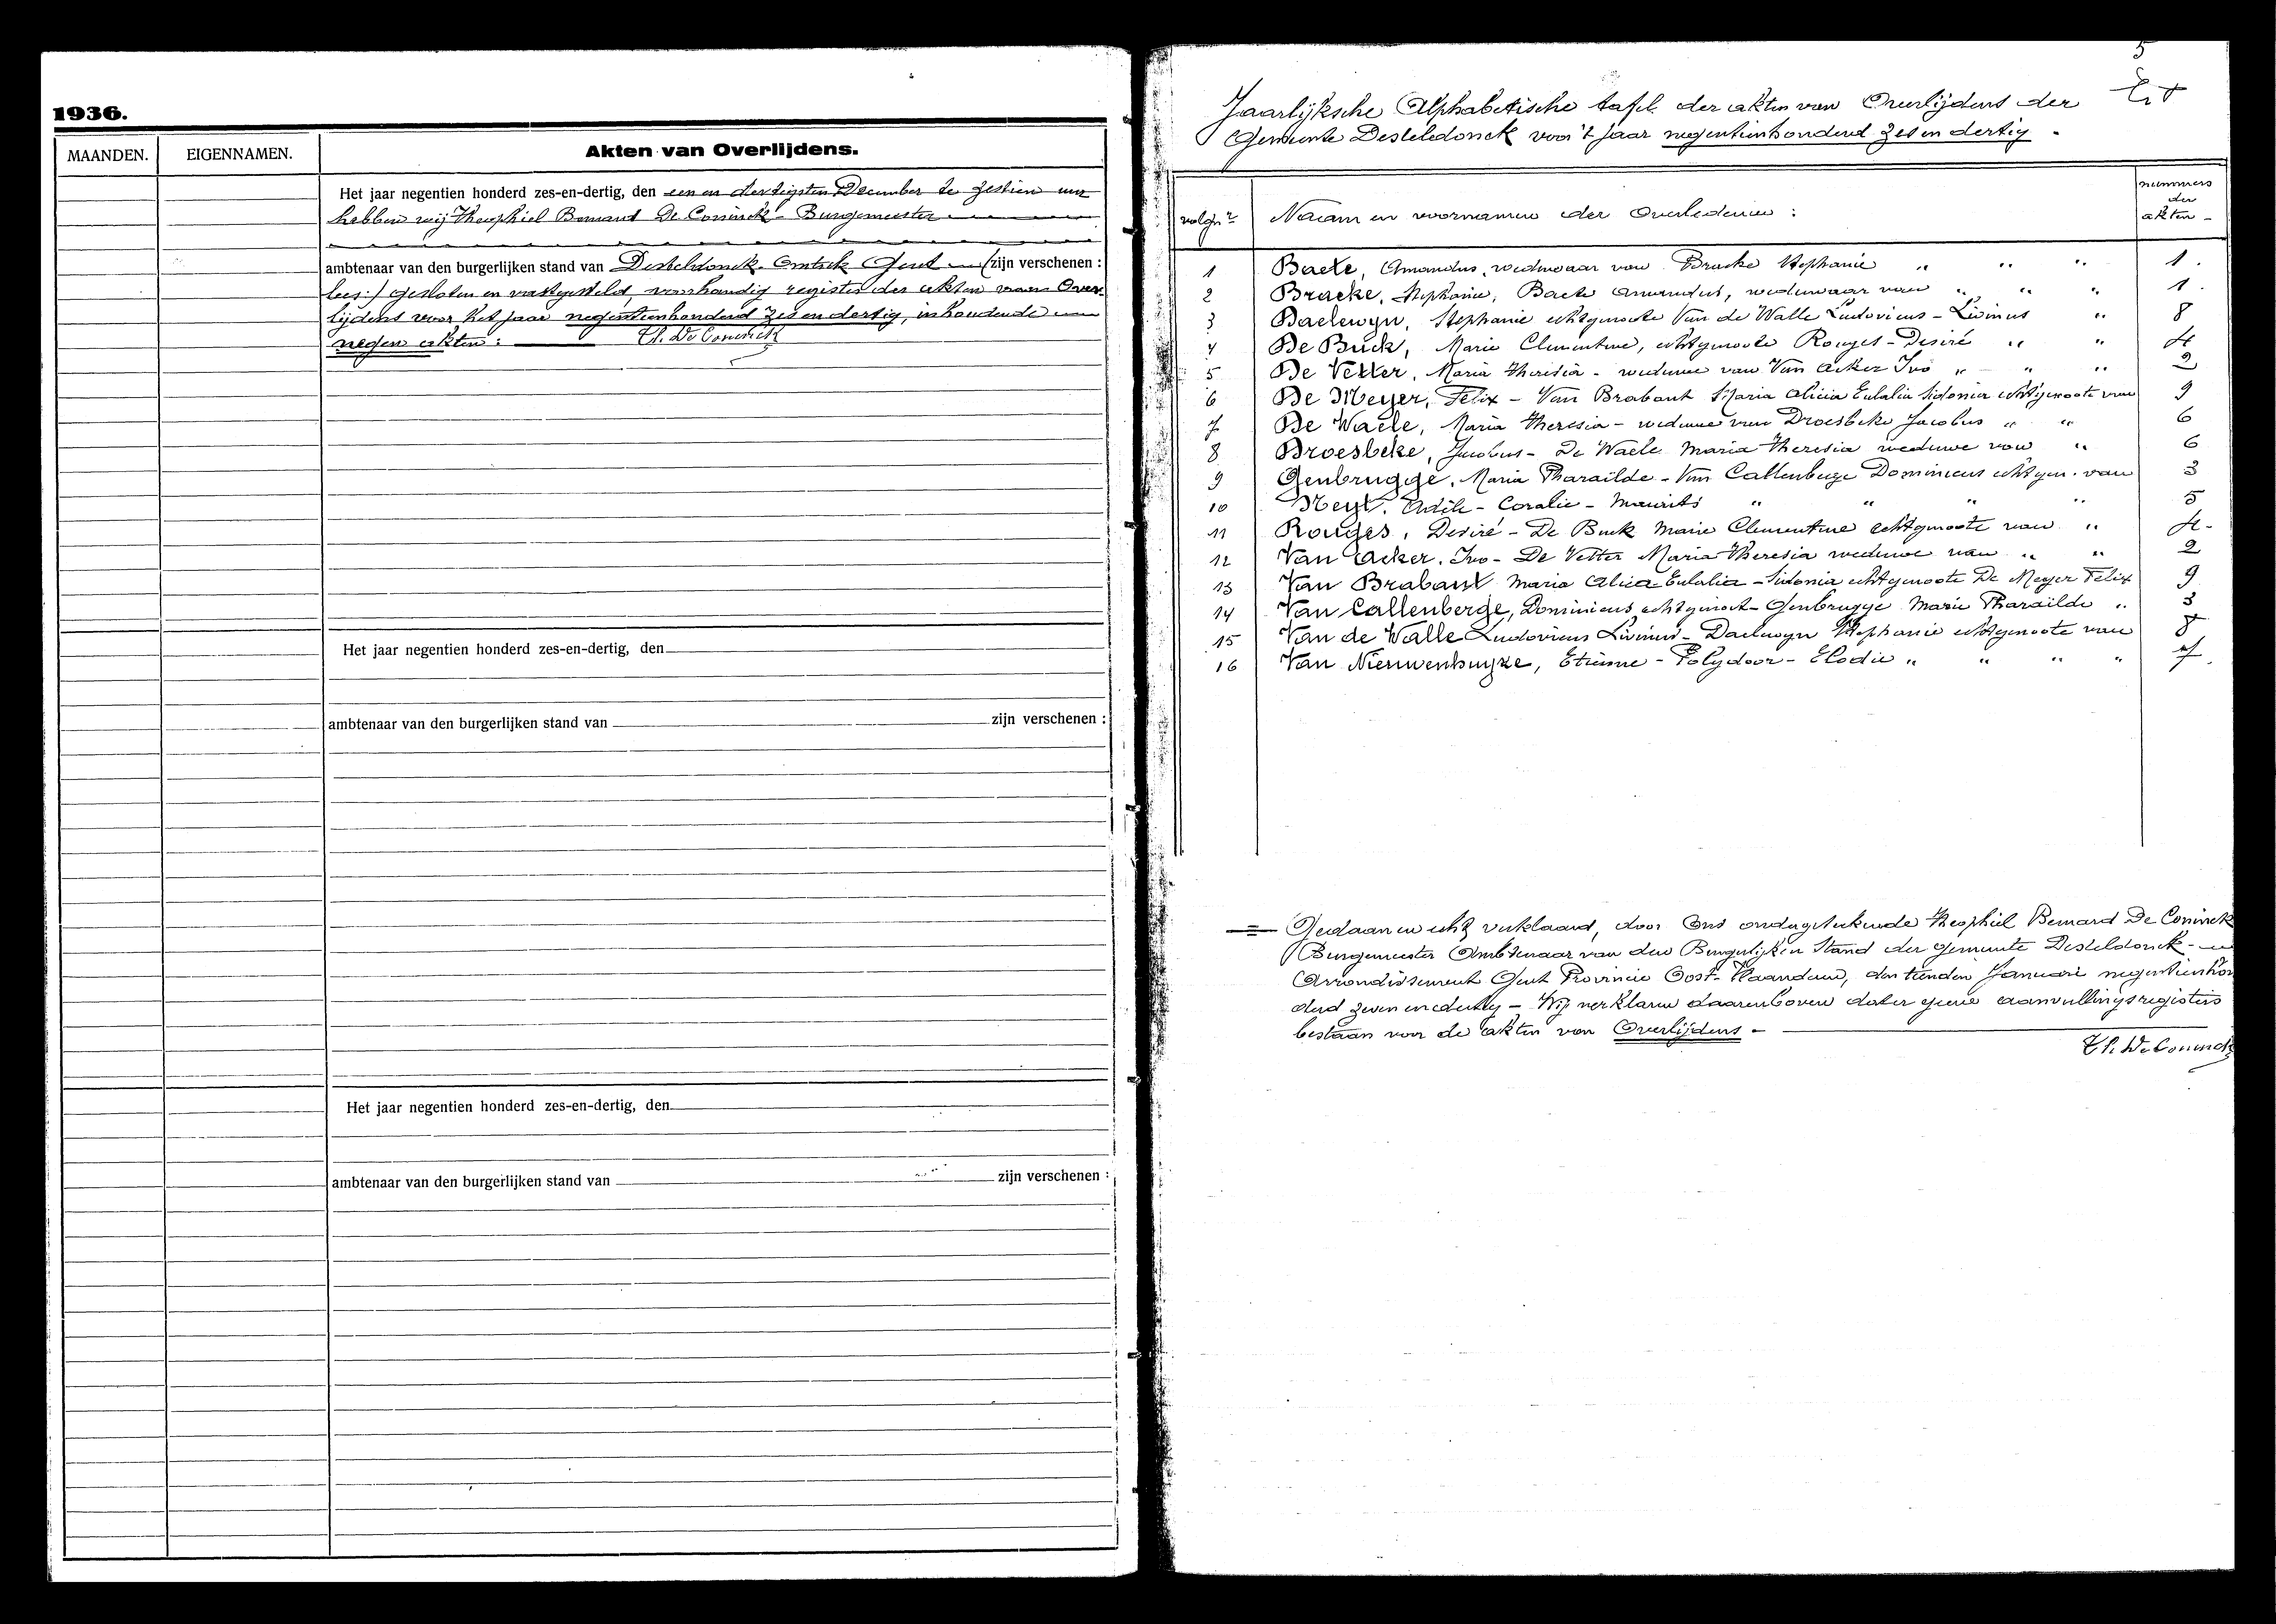 1936.
MAANDEN.
EIGENNAMEN.
Akten van Overlijdens.
Het jaar negentien honderd zes-en-dertig, den een en dertigsten December te zestien ure
hebben wij Theophiel Bernard De Coninck - Burgemeester
ambtenaar van den burgerlijken stand van Desteldonck. Gent (zijn verschenen :
lees:) gesloten en vastgesteld, register der akten van Over-
lijdens voor het jaar negentienhonderd zes en dertig, inhoudende
negen akten : Th. De Coninck
Het jaar negentien honderd zes-en-dertig, den
ambtenaar van den burgerlijken stand van zijn verschenen :
Het jaar negentien honderd zes-en-dertig, den
ambtenaar van den burgerlijken stand van zijn verschenen :
5
Jaarlijksche Alphabetische tafel der akten van Overlijdens der
Gemeente Desteldonck voor 't jaar negentienhonderd zes en dertig -
volgnr Naam en voornamen der Overledenen : nummers der akten -
1 Baete, Amandus, weduwaar van Bracke Stephanie " " " 1.
2 Bracke, Stephanie, Baete Amandus, weduwaar van " " " 1.
3 Baelewyn, Stephanie echtgenoote Van de Walle Ludovicus - Livinus " 8
4 De Buck, Marie Clementine, echtgenoote Rouges - Desiré " " 4
5 De Vetter, Maria Theresia - weduwe van Van Acker Ivo " " " 2
6 De Meyer, Felix - Van Brabant Maria Alicia Eulalia Sidonia echtgenoote van 9
7 De Waele, Maria Theresia - weduwe van Droesbeke Jacobus " " 6
8 Broesbeke, Jacobus - De Waele Maria Theresia weduwe van " 6
9 Genbrugge, Maria Pharaïlde - Van Callenberge Dominicus echtgen. van 3
10 Heyt. - Coralie - Maurits " " " " 5
11 Rouges, Desiré - De Buck Marie Clementine echtgenoote van " 4-
12 Van Acker. Ivo - De Vetter Maria Theresia weduwe van " " 2
13 Van Brabant Maria Alicia Eulalia - Sidonia echtgenoote De Meyer Felix 9
14 Van Callenberge, Dominicus echtgenoot - Genbrugge Marie Pharaïlde " 3
15 Van de Walle Ludovicus Livinus - Daelwyn Stephanie echtgenoote van 8
16 Van Nieuwenhuyze, Etienne - Polydoor - Elodie " " " " 7.
Gedaan en echt verklaard, door Ons ondergeteekende Theophiel Bernard De Coninck
Burgemeester Ambtenaar van den Burgerlijken Stand der gemeente Desteldonck -
Arrondissement Gent Provincie Oost-Vlaanderen, den tienden Januari negentienhon
derd zeven en dertig - Wij verklaren daarenboven dater geene aanvullingsregisters
bestaan voor de akten van Overlijdens -
Th. De Coninck